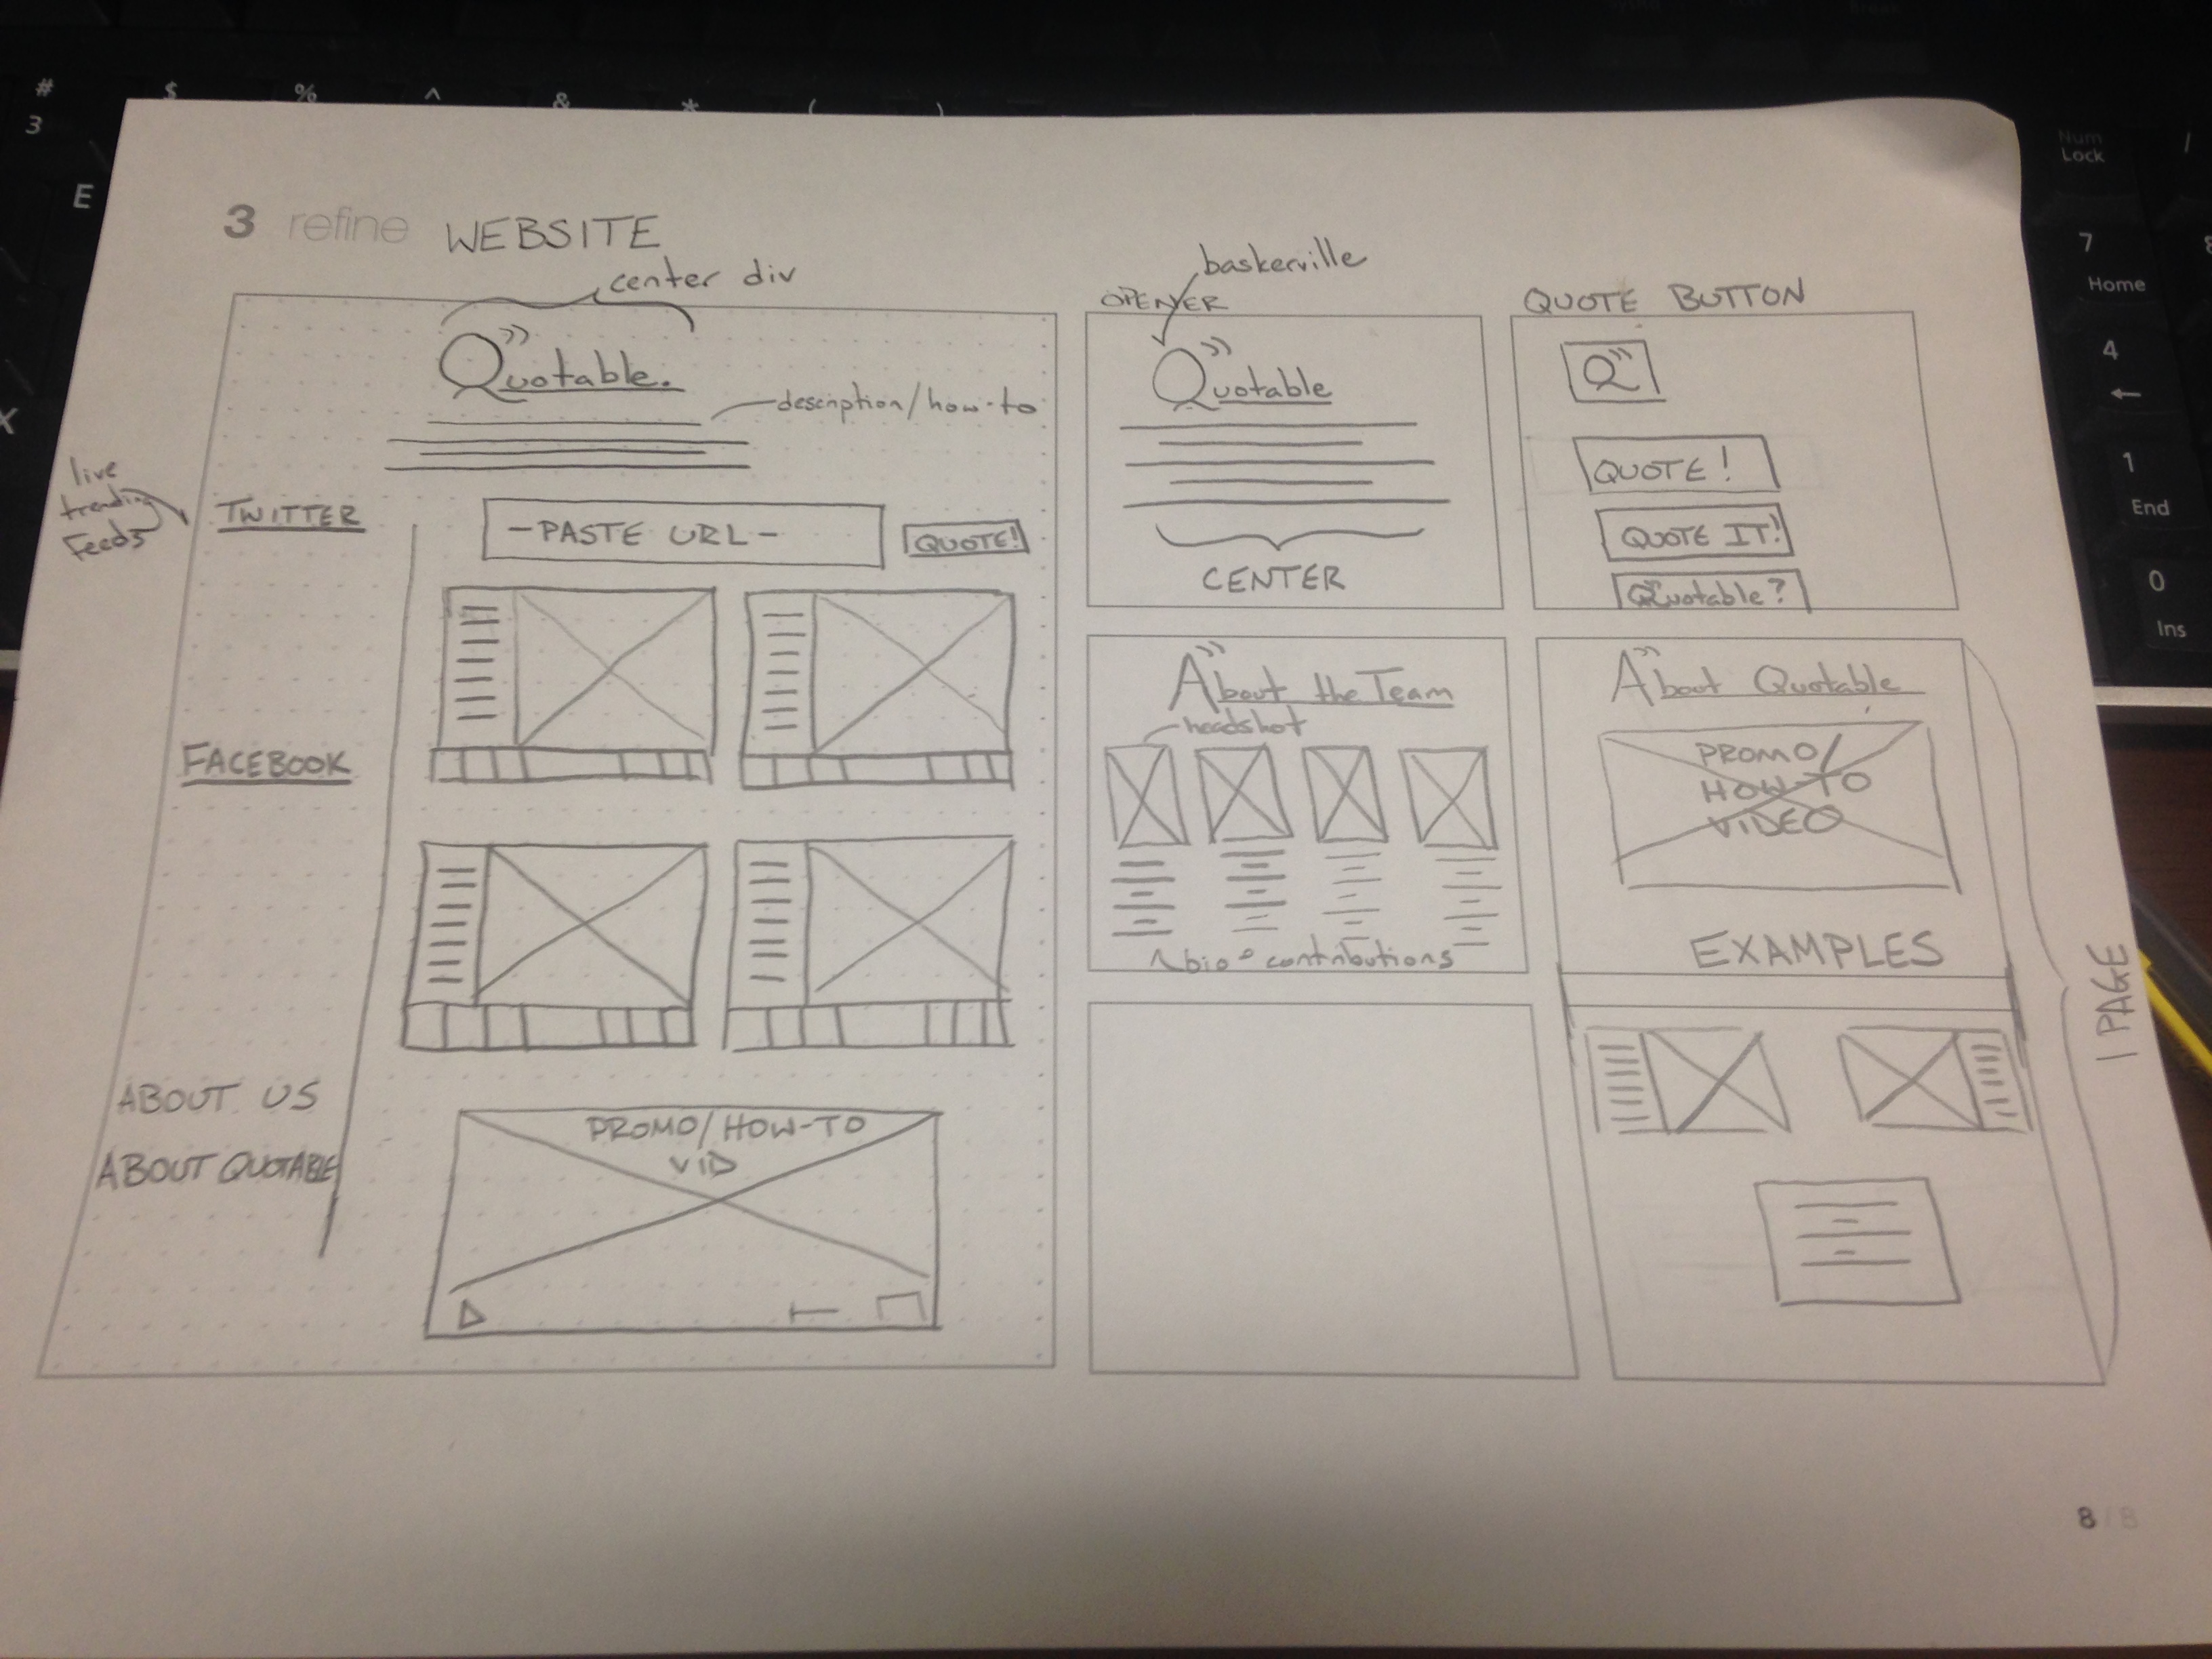 # $ % ^ & * ( )
3
E
X
Num
Lock
/
7
8
Home
4
←
1
End
0
Ins
3 refine WEBSITE
center div
Q”uotable.
description/how-to
live
trending
Feeds
TWITTER
-PASTE URL-
QUOTE!
FACEBOOK
ABOUT US
ABOUT QUOTABLE
PROMO/HOW-TO
VID
baskerville
OPENER
Q”uotable
CENTER
QUOTE BUTTON
Q”
QUOTE!
QUOTE IT!
Q”uotable?
A”bout the Team
headshot
bio contributions
A”bout Quotable
PROMO/
HOW-TO
VIDEO
EXAMPLES
1 PAGE
8/8